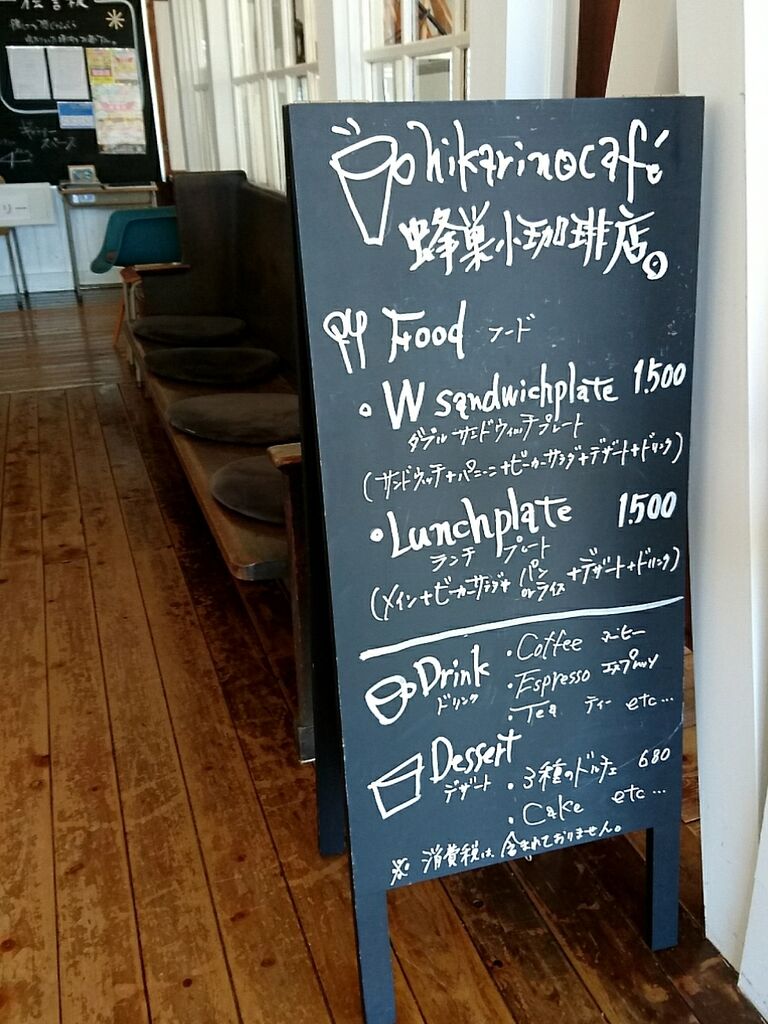 hikarinocafé
蜂巣小珈琲店。
Food フード
・W sandwichplate 1.500
ダブルサンドウィッチプレート
(サンドウィッチ+パニーニ+ビーカーサラダ+デザート+ドリンク)
・Lunchplate 1.500
ランチ プレート
(メイン+ビーカーサラダ+パンorライス+デザート+ドリンク)
Drink ドリンク
・Coffee コーヒー
・Espresso エスプレッソ
・Tea ティー etc...
Dessert デザート
・3種のドルチェ 680
・Cake etc...
※ 消費税は含まれておりません。
伝言板
ギャラリー
スペース
リー